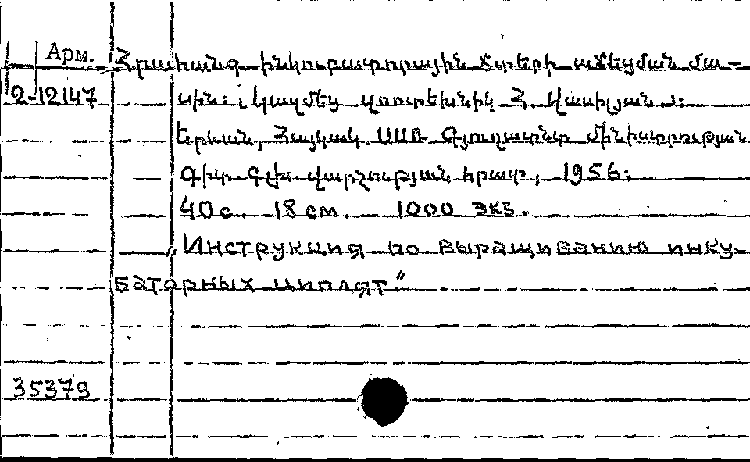 Арм.
Հրահանգ ինկուբատորային ճտերի աճեցման մա-
2-12147
սին: Կազմեց զոոտեխնիկ Հ.
Երևան, Հայկակ. ՍՍՌ Գյուղատնտ մինիստրության
Գիտ գլխ վարչության հրատ, 1956.
40 с. 18 см. 1000 экз.
Инструкция по выращиванию инку-
баторных циплят"
35379